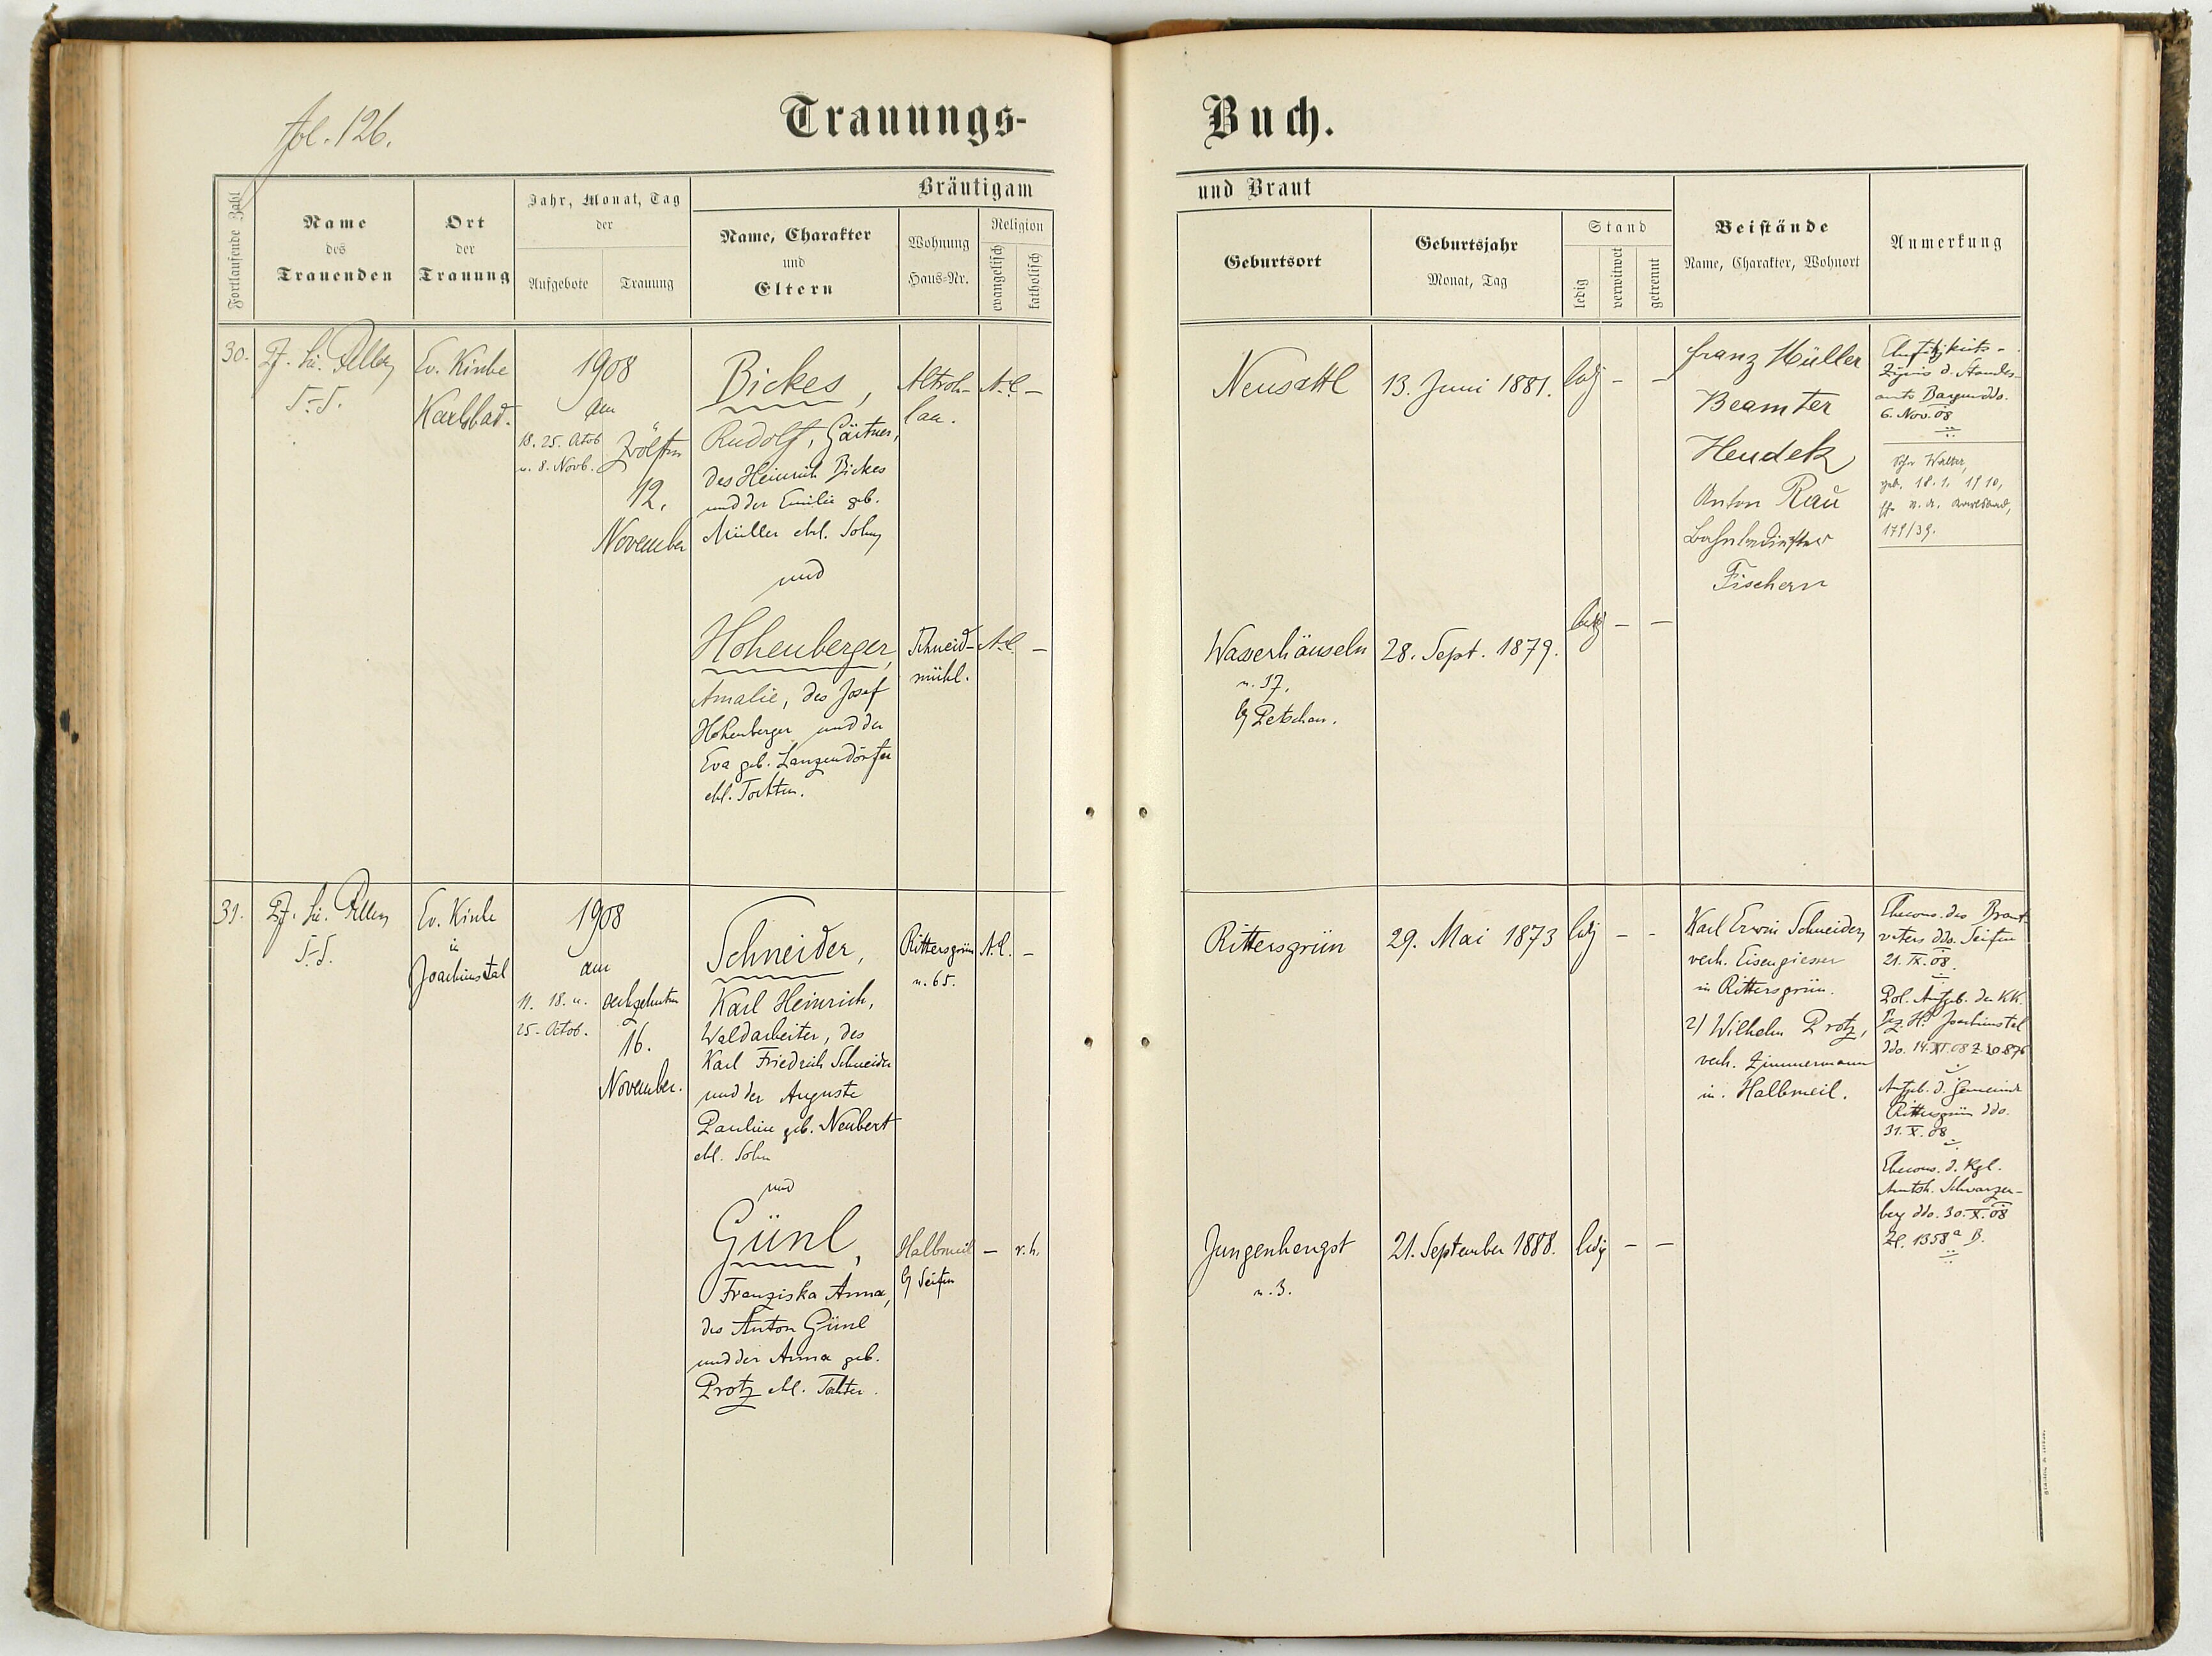 fol. 126.
Trauungs-
Buch.
Fortlaufende Zahl
Name
des
Trauenden
Ort
der
Trauung
Jahr, Monat, Tag
der
Aufgebote
Trauung
Bräutigam
Name, Charakter
und
Eltern
Wohnung
Haus-Nr.
Religion
evangelisch
katholisch
und Braut
Geburtsort
Geburtsjahr
Monat, Tag
Stand
ledig
verwitwet
getrennt
Beistände
Name, Charakter, Wohnort
Anmerkung
30.
Ev. Kirche
Karlsbad.
1908
am
18. 25. Octob
u. 8. Novb.
Zwölften
12.
November
Bickes,
Rudolf, Gärtner,
des Heinrich Bickes
und der Emilie geb.
Müller ehl. Sohn
und
Hohenberger,
Amalie, des Josef
Hohenberger und der
Eva geb. Langendörfer
ehl. Tochter.
Altroh-
lau.
A.C. –
Schneid-
mühl.
A.C. –
Neusattl
13. Juni 1881.
ledig – –
Wasserhäuseln
n. 37,
b/ Petschau.
28. Sept. 1879.
ledig – –
Franz Müller
Beamter
Heudek
Anton Rau
Fischern
6. Nov. 08
Walter,
geb. 18.1. 1910,
179/39.
31.
Ev. Kirche
in
Joachimstal
1908
am
11. 18. u.
25. Octob.
16.
November.
Schneider,
Karl Heinrich,
Waldarbeiter, des
Karl Friedrich Schneider
und der Auguste
Pauline geb. Neubert
ehl. Sohn
und
Günl,
Franziska Anna,
des Anton Günl
und der Anna geb.
Protz ehl. Tochter.
Rittersgrün
n. 65.
A.C. –
Halbmeil
b/ Seifen
– r. k.
Rittersgrün
29. Mai 1873
ledig – –
Jungenhengst
n. 3.
21. September 1888.
ledig – –
Karl Erwin Schneider,
verh. Eisengiesser
in Rittersgrün.
2/ Wilhelm Protz,
verh. Zimmermann
in Halbmeil.
Ehecons. des Braut-
vaters ddo. Seifen
21. IX. 08.
Pol. Aufgeb. der KK.
Bez. H. Joachimstal
ddo. 14. XI. 08 Z. 20876
Aufgeb. d. Gemeinde
Rittersgrün ddo.
31. X. 08
Ehecons. d. Kgl.
Amtsh. Schwarzen-
berg ddo. 30. X. 08
Zl. 1358a B.